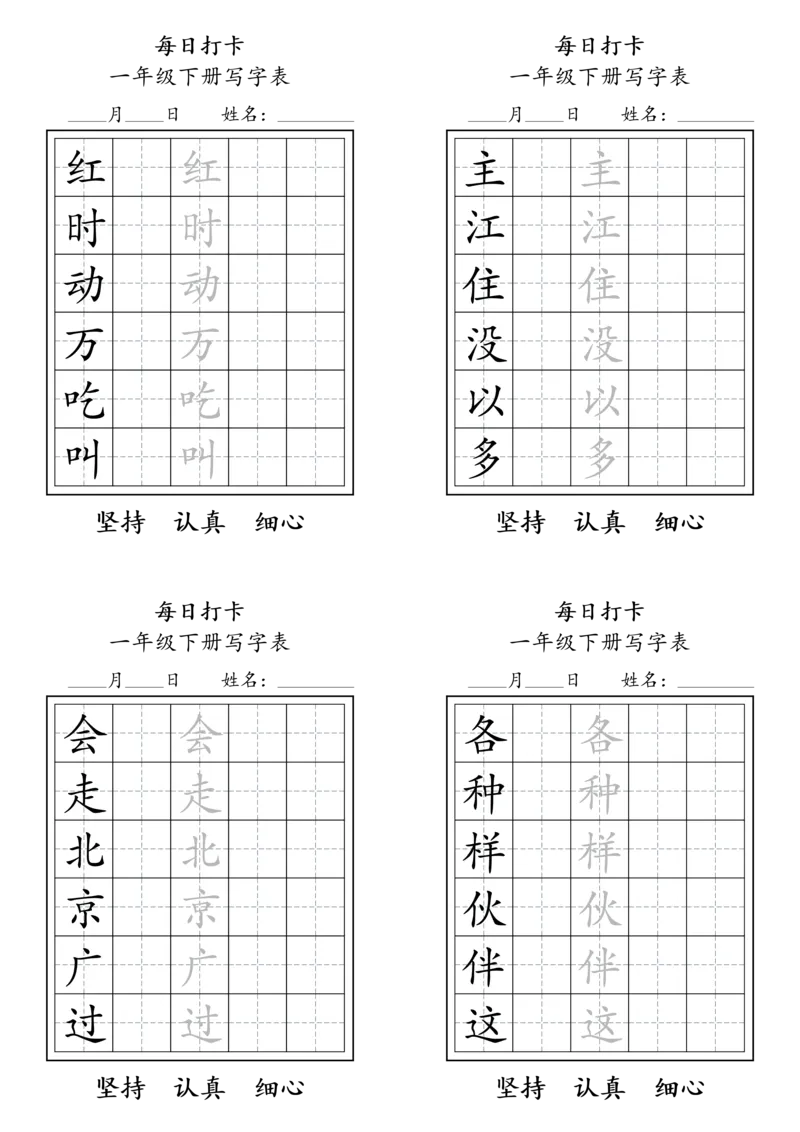 每日打卡
一年级下册写字表
____月____日 姓名：________
红 红
时 时
动 动
万 万
吃 吃
叫 叫
坚持 认真 细心
每日打卡
一年级下册写字表
____月____日 姓名：________
主 主
江 江
住 住
没 没
以 以
多 多
坚持 认真 细心
每日打卡
一年级下册写字表
____月____日 姓名：________
会 会
走 走
北 北
京 京
广 广
过 过
坚持 认真 细心
每日打卡
一年级下册写字表
____月____日 姓名：________
各 各
种 种
样 样
伙 伙
伴 伴
这 这
坚持 认真 细心